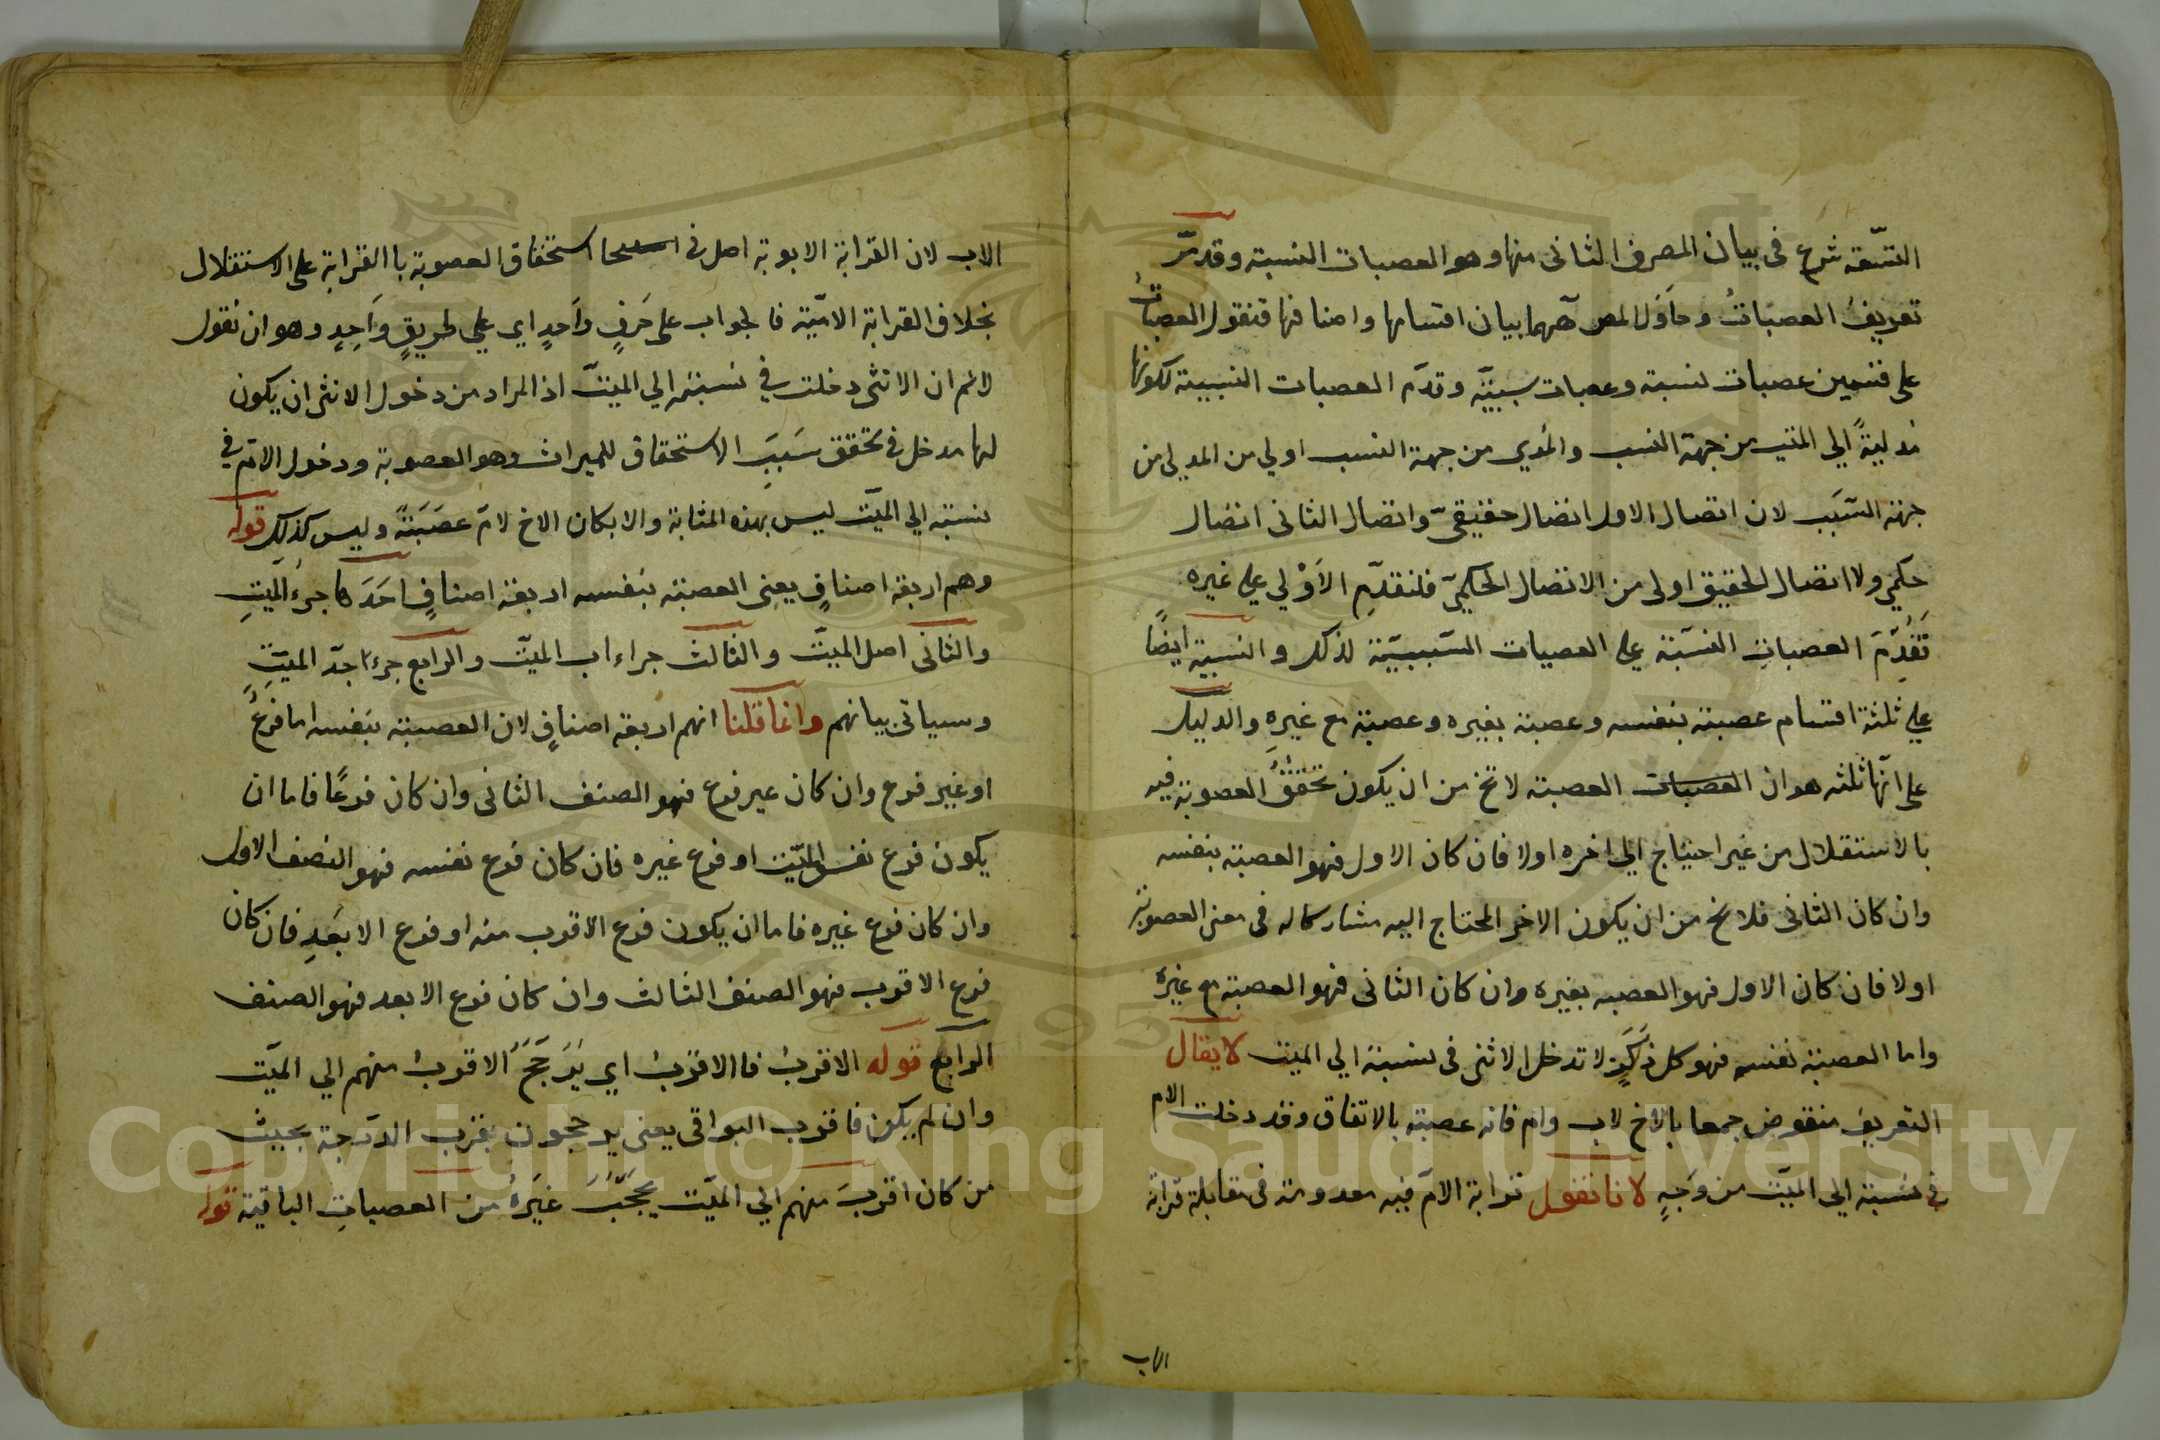 التسعة شرع فى بيان المصرف الثانى منها وهو العصبات النسبة وقد مرّ
تعريف العصبات وحاول المص ههنا بيان اقسامها واصنافها فنقول العصبات
على قسمين عصبات نسبة وعصبات سببيّة وقدّم العصبات النسبية لكونها
مُدليةً الي الميت من جهة النسب والمُدلي من جهة النسب اولي من المدلي من
جهة السَبَب لان اتصال الاول اتصال حقيقيّ واتصال الثانى اتصال
حكمي ولا اتصال الحقيقى اولى من الاتصال الحكميّ فلتقدّم الأَوْلي علي غيره
تَقَدَّمَ العصباتِ النسَبَة علي العصبات السَبَبيّة لذلك والنسبية ايضًا
علي ثلثة اقسام عصبة بنفسه وعصبة بغيره وعصبة مع غيرهِ والدليل
على انّها ثلثه هو ان العصبات العصبة لا تخ من ان يكون تحققُ العصوبة فيه
بالاستقلال من غير احتياج الي اخره اولا فان كان الاول فهو العصبة بنفسه
وان كان الثانى فلا يخ من ان يكون الاخر المحتاج اليه مشاركا له فى معنى العصوبة
اولا فان كان الاول فهو العصبه بغيره وان كان الثانى فهو العصبة مع غيره
واما العصبة بنفسه فهو كل ذَكَرٍ لا تدخل الانثى فى نسبته الي الميت لا يقال
التعريف منقوض جمعا بالاخ لاب وام فانه عصبة بالاتفاق وقد دخلت الام
فى نسبته الي الميّت من وَجهٍ لانا نقول قرابة الامّ فيه معدومة فى مقابلة قرابة
الاب
الاب لان القرابة الابوية اصل فى استحقاق العصوبة باالقرابة على الاستقلال
بخلاف القرابة الاميّة فالجواب على حَرفٍ واحدٍ اي علي طريقٍ واحِدٍ وهو ان نقول
لانم ان الانثى دخلت في نسبته الي الميتّ اذ المراد من دخول الانثى ان يكون
لها مدخل فى تحقق سَبَبِ الاستحقاق للميراث وهو العصوبة ودخول الام في
نسبته الي الميّت ليس بهذه المثابة والا لكان الاخ لامّ عَصَبَةً وليس كذلِك قوله
وهم اربعة اصنافٍ يعنِى العصبة بنفسه اربعة اصنافٍ احَدَها جزءُ الميّتِ
والثانى اصل الميت والثالث جزاء اب الميّت والرابع جزءُ جدّ الميّتِ
وسياتى بيانهم وانما قلنا انهم اربعة اصنافٍ لان العصبة بنفسه اما فرعٌ
او غير فرع وان كان غير فرع فهو الصنف الثانى وان كان فرعًا فاما ان
يكون فرع نفس الميّت او فرع غيره فان كان فرع نفسه فهو الصنف الاول
وان كان فرع غيره فاما ان يكون فرع الاقرب منه او فرع الابعَدِ فان كان
فرع الاقرب فهو الصنف الثالث وان كان فرع الابعد فهو الصنف
الرابع قوله الاقربُ فاالاقربُ اي يُرَجَّحُ الاقربُ منهم الي الميّت
وان لم يكن فاقرب البواقى يعنى يرجحون بقرب الدّرجة بحيث
من كان اقربَ منهم الي الميّت يحجّبُ غيَرَهُ من العصباتِ الباقية قوله
Copyright © King Saud University